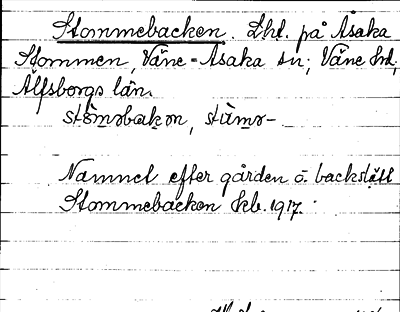 Stommebacken. Lht. på Åsaka
Stommen, Väne-Åsaka sn; Väne hd,
Älfsborgs län.
stòmərbakən, stùmər-
Namnet efter gården o. backslätt
Stommebacken Ekb. 1917.